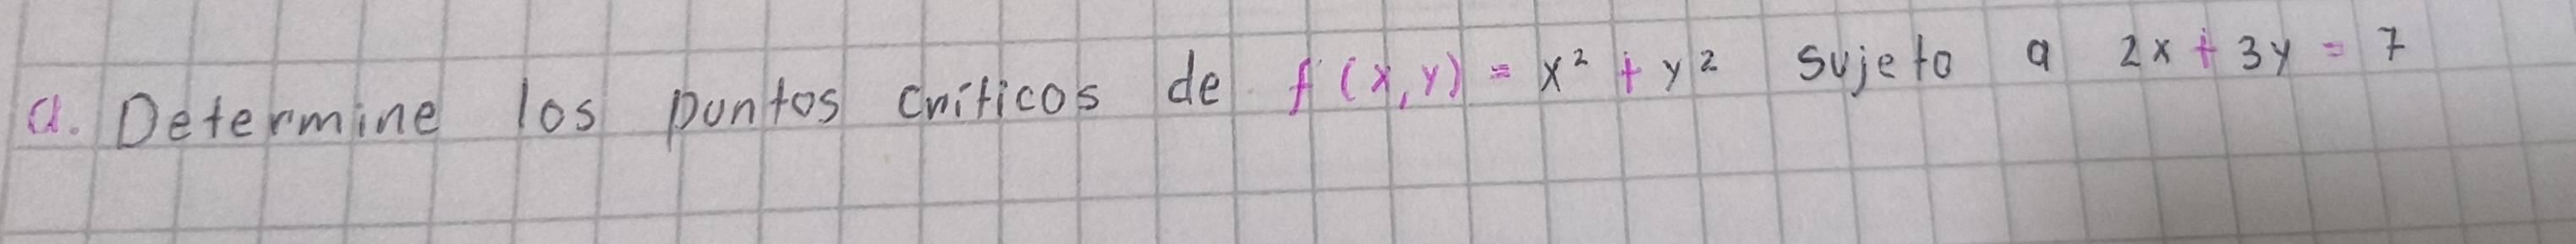 a. Determine los puntos críticos de f(x,y) = x² + y² sujeto a 2x + 3y = 7